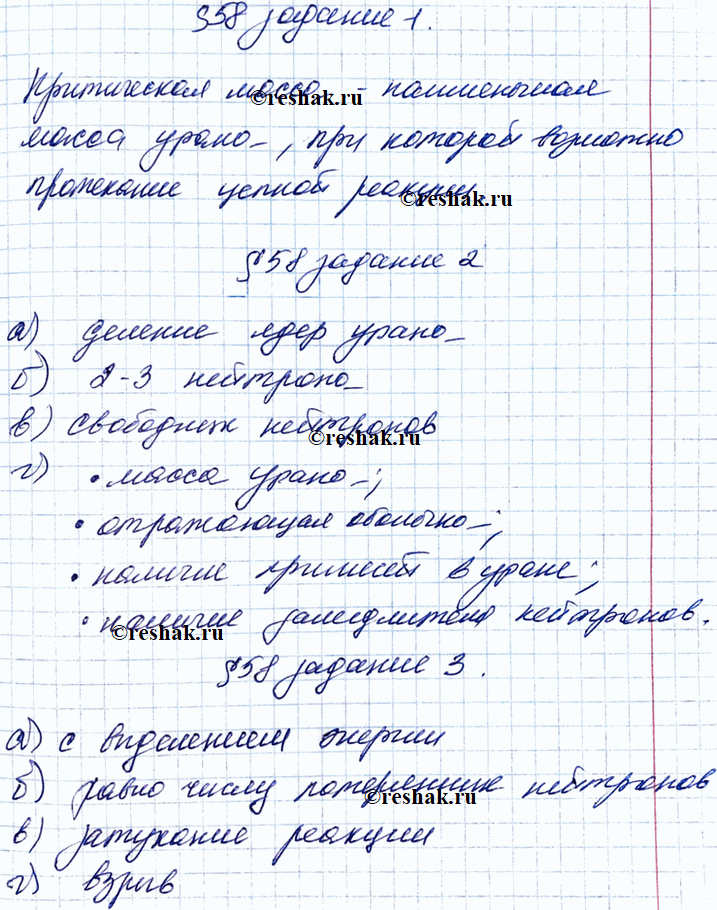 §58 задание 1.
Критическая масса - наименьшая
©reshak.ru
масса урана, при которой возможно
протекание цепной реакции
©reshak.ru
§58 задание 2
а) деление ядер урана
б) 2-3 нейтрона
в) свободных нейтронов
©reshak.ru
г) • масса урана;
• отражающая оболочка;
• наличие примесей в уране;
• наличие замедлителя нейтронов.
©reshak.ru
§58 задание 3.
а) с выделением энергии
б) равно числу потерянных нейтронов
©reshak.ru
в) затухание реакции
г) взрыв